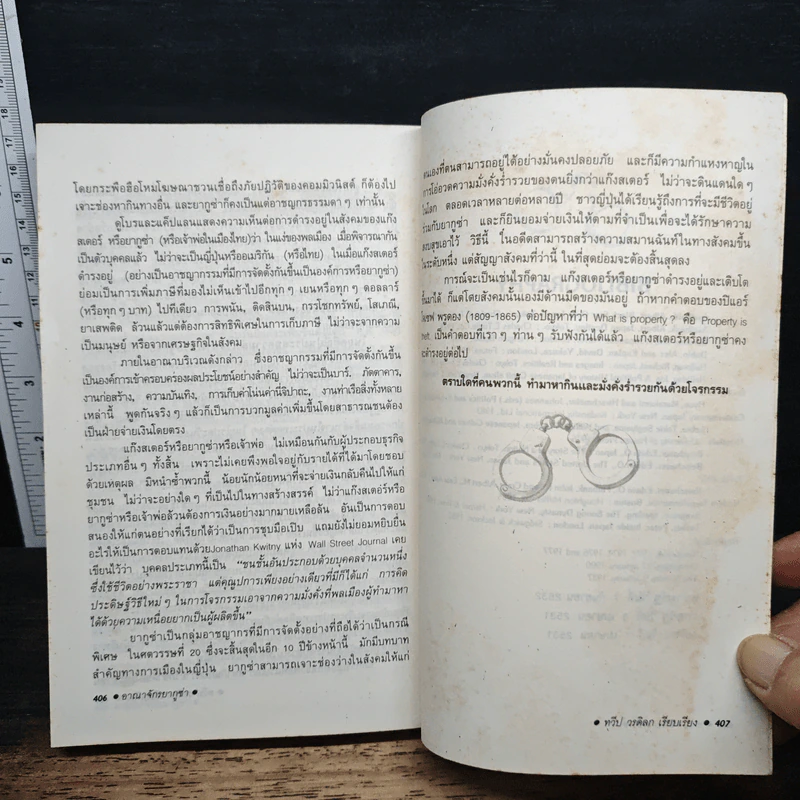 โดยกระพือฮือโหมโฆษณาชวนเชื่อถึงภัยปฏิวัติของคอมมิวนิสต์ ก็ต้องไป
เจาะช่องหากินทางอื่น และยากูซ่าก็คงเป็นแต่อาชญกรธรรมดา ๆ เท่านั้น
ดูโบรและแค็ปแลนแสดงความเห็นต่อการดำรงอยู่ในสังคมของแก๊ง
สเตอร์ หรือยากูซ่า (หรือเจ้าพ่อในเมืองไทย)ว่า ในแง่ของพลเมือง เมื่อพิจารณากัน
เป็นตัวบุคคลแล้ว ไม่ว่าจะเป็นญี่ปุ่นหรืออเมริกัน (หรือไทย) ในเมื่อแก๊งสเตอร์
ดำรงอยู่ (อย่างเป็นอาชญากรรมที่มีการจัดตั้งกันขึ้นเป็นองค์การหรือยากูซ่า)
ย่อมเป็นการเพิ่มภาษีที่มองไม่เห็นเข้าไปอีกทุก ๆ เยนหรือทุก ๆ ดอลลาร์
(หรือทุก ๆ บาท) ไปทีเดียว การพนัน, ติดสินบน, กรรโชกทรัพย์, โสเภณี,
ยาเสพติด ล้วนแล้วแต่ต้องการสิทธิพิเศษในการเก็บภาษี ไม่ว่าจะจากความ
เป็นมนุษย์ หรือจากเศรษฐกิจในสังคม
ภายในอาณาบริเวณดังกล่าว ซึ่งอาชญากรรมที่มีการจัดตั้งกันขึ้น
เป็นองค์การเข้าครอบครองผลประโยชน์อย่างสำคัญ ไม่ว่าจะเป็นบาร์, ภัตตาคาร,
งานก่อสร้าง, ความบันเทิง, การเก็บค่าโน่นค่านี่จิปาถะ, งานท่าเรือสิ่งทั้งหลาย
เหล่านี้ พูดกันจริง ๆ แล้วก็เป็นการบวกมูลค่าเพิ่มขึ้นโดยสาธารณชนต้อง
เป็นฝ่ายจ่ายเงินโดยตรง
แก๊งสเตอร์หรือยากูซ่าหรือเจ้าพ่อ ไม่เหมือนกันกับผู้ประกอบธุรกิจ
ประเภทอื่น ๆ ทั้งสิ้น เพราะไม่เคยพึงพอใจอยู่กับรายได้ที่ได้มาโดยชอบ
ด้วยเหตุผล มิหนำซ้ำพวกนี้ น้อยนักน้อยหนาที่จะจ่ายเงินกลับคืนไปให้แก่
ชุมชน ไม่ว่าจะอย่างใด ๆ ที่เป็นไปในทางสร้างสรรค์ ไม่ว่าแก๊งสเตอร์หรือ
ยากูซ่าหรือเจ้าพ่อล้วนต้องการเงินอย่างมากมายเหลือล้น อันเป็นการตอบ
สนองให้แก่ตนอย่างที่เรียกได้ว่าเป็นการชุบมือเปิบ แถมยังไม่ยอมหยิบยื่น
อะไรให้เป็นการตอบแทนด้วยJonathan Kwitny แห่ง Wall Street Journal เคย
เขียนไว้ว่า บุคคลประเภทนี้เป็น "ชนชั้นอันประกอบด้วยบุคคลจำนวนหนึ่ง
ซึ่งใช้ชีวิตอย่างพระราชา แต่คุณูปการเพียงอย่างเดียวที่มีก็ได้แก่ การคิด
ประดิษฐ์วิธีใหม่ ๆ ในการโจรกรรมเอาจากความมั่งคั่งที่พลเมืองผู้ทำมาหา
ได้ด้วยความเหนื่อยยากเป็นผู้ผลิตขึ้น"
ยากูซ่าเป็นกลุ่มอาชญากรที่มีการจัดตั้งอย่างที่ถือได้ว่าเป็นกรณี
พิเศษ ในศตวรรษที่ 20 ซึ่งจะสิ้นสุดในอีก 10 ปีข้างหน้านี้ มักมีบทบาท
สำคัญทางการเมืองในญี่ปุ่น ยากูซ่าสามารถเจาะช่องว่างในสังคมให้แก่
406 • อาณาจักรยากูซ่า •
ตนเองที่ตนสามารถอยู่ได้อย่างมั่นคงปลอดภัย และก็มีความกำแหงหาญใน
การโอ่อวดความมั่งคั่งร่ำรวยของตนยิ่งกว่าแก๊งสเตอร์ ไม่ว่าจะดินแดนใด ๆ
ในโลก ตลอดเวลาหลายต่อหลายปี ชาวญี่ปุ่นได้เรียนรู้ถึงการที่จะมีชีวิตอยู่
ร่วมกับยากูซ่า และก็ยินยอมจ่ายเงินให้ตามที่จำเป็นเพื่อจะได้รักษาความ
สงบสุขเอาไว้ วิธีนี้ ในอดีตสามารถสร้างความสมานฉันท์ในทางสังคมขึ้น
ในระดับหนึ่ง แต่สัญญาสังคมที่ว่านี้ ในที่สุดย่อมจะต้องสิ้นสุดลง
การณ์จะเป็นเช่นไรก็ตาม แก๊งสเตอร์หรือยากูซ่าดำรงอยู่และเติบโต
ขึ้นมาได้ ก็แต่โดยสังคมนั้นเองมีด้านมืดของมันอยู่ ถ้าหากคำตอบของปิแอร์
โจเซฟ พรูดอง (1809-1865) ต่อปัญหาที่ว่า What is property? คือ Property is
theft. เป็นคำตอบที่เรา ๆ ท่าน ๆ รับฟังกันได้แล้ว แก๊งสเตอร์หรือยากูซ่าคง
จะดำรงอยู่ต่อไป
ตราบใดที่คนพวกนี้ ทำมาหากินและมั่งคั่งร่ำรวยกันด้วยโจรกรรม
• ทวีป วรดิลก เรียบเรียง • 407